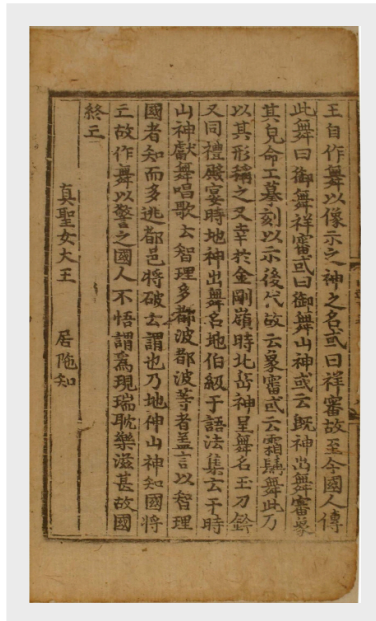 王自作舞以像示之神之名或曰祥審故至今國人傳
此舞曰御舞祥審或曰御舞山神或云旣神出舞審象
其皃命工摹刻以示後代故云象審或云霜髯舞此乃
以其形稱之又幸於金剛嶺時北岳神呈舞名玉刀鈐
又同禮殿宴時地神出舞名地伯級于語法集云于時
山神獻舞唱歌云智理多都波都波等者盖言以智理
國者知而多逃都邑將破云謂也乃地神山神知國將
亡故作舞以警之國人不悟謂爲現瑞耽樂滋甚故國
終亡
真聖女大王 居陁知